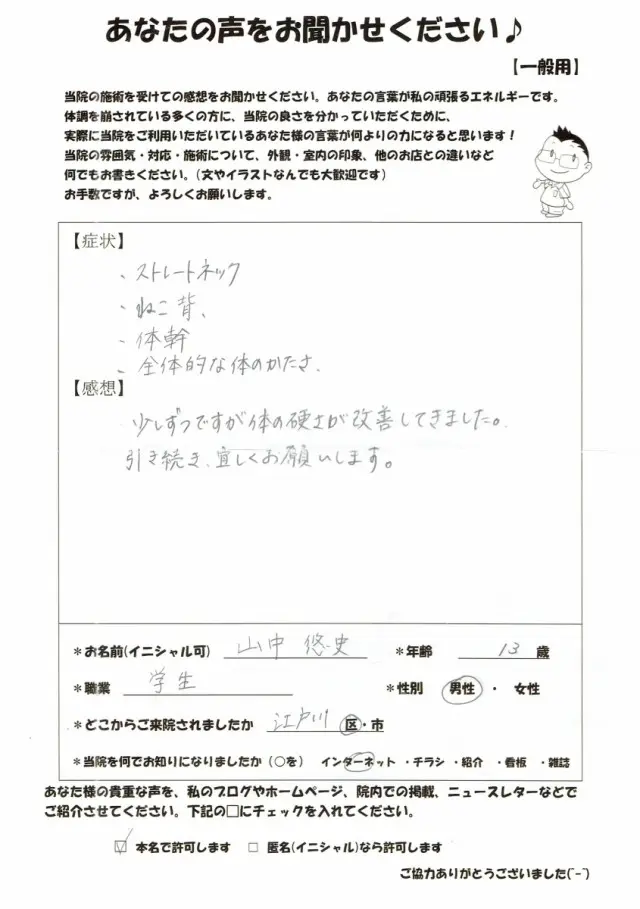 あなたの声をお聞かせください♪
【一般用】
当院の施術を受けての感想をお聞かせください。あなたの言葉が私の頑張るエネルギーです。
体調を崩されている多くの方に、当院の良さを分かっていただくために、
実際に当院をご利用いただいているあなた様の言葉が何よりの力になると思います!
当院の雰囲気・対応・施術について、外観・室内の印象、他のお店との違いなど
何でもお書きください。(文やイラストなんでも大歓迎です)
お手数ですが、よろしくお願いします。
【症状】
、ストレートネック
・ねこ背、
・体幹
・全体的な体のかたさ、
【感想】
少しずつですが体の硬さが改善してきました。
引き続き、宜しくお願いします。
*お名前(イニシャル可) 山中 悠史 *年齢 13 歳
*職業 学生 *性別 男性 ・ 女性
*どこからご来院されましたか 江戸川 区・市
*当院を何でお知りになりましたか(○を) インターネット ・チラシ ・紹介 ・看板 ・雑誌
あなた様の貴重な声を、私のブログやホームページ、院内での掲載、ニュースレターなどで
ご紹介させてください。下記の□にチェックを入れてください。
☑ 本名で許可します □ 匿名(イニシャル)なら許可します
ご協力ありがとうございました(^-^)